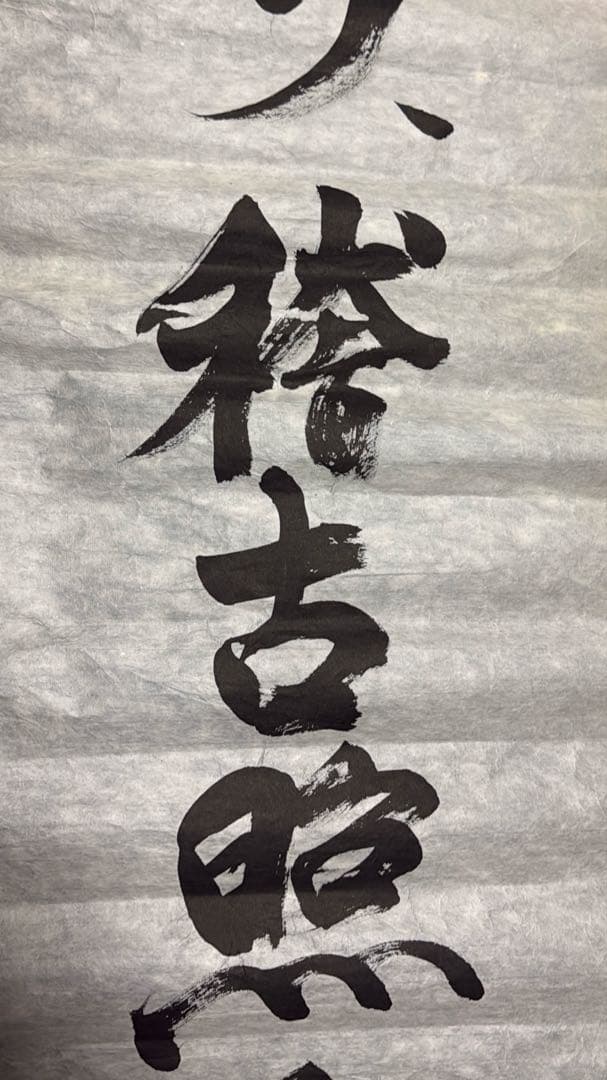 稽古照